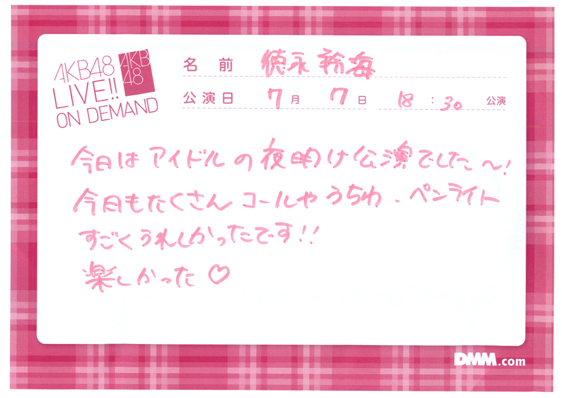 AKB48
LIVE!!
ON DEMAND
AKB
48
名 前 徳永羚海
公演日 7月 7日 18:30 公演
今日は アイドルの夜明け公演でした〜!
今日もたくさん コールや うちわ、ペンライト
すごくうれしかったです!!
楽しかった♡
DMM.com